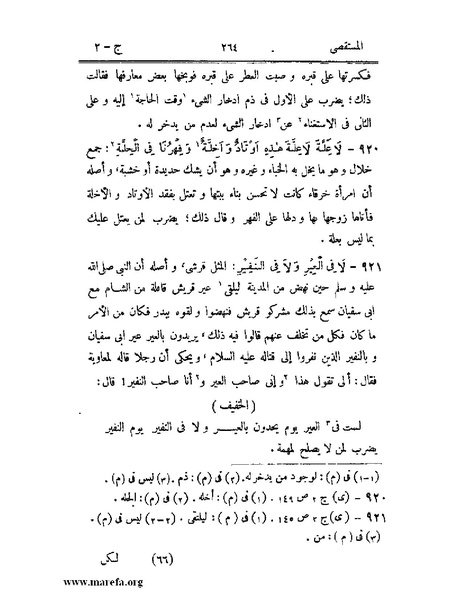 المستقصى ٢٦٤ ج - ٢
فكسرتها على قبره و صبت العطر على قبره فوبخها بعض معارفها فقالت
ذلك؛ يضرب على الأول فى ذم ادخار الشىء ١وقت الحاجة١ إليه و على
الثانى فى الاستغناء ٢ عن٣ ادخار الشىء لعدم من يدخر له .
٩٢٠ - لَا عِلَّةَ لَا عِلَّةَ هٰذِهِ اَوْتَادٌ وَ اَخِلَّةٌ١ وَ فِهْرُنَا فِى الْحِلَّةِ٢: جمع
خلال و هو ما يخل به الخباء و غيره و هو أن يشك حديدة أو خشبة، و أصله
أن امرأة خرقاء كانت لا تحسن بناء بيتها و تعتل بفقد الاوتاد و الأخلة
فأتاها زوجها بها و دلها على الفهر و قال ذلك؛ يضرب لمن يعتل عليك
بما ليس بعلة .
٩٢١ - لَا فِى الْعِيْرِ وَ لَا فِى النَّفِيْرِ: المثل قرشى، و أصله أن النبى صلى الله
عليه و سلم حين نهض من المدينة ليلقى١ عير قريش قافلة من الشام مع
ابى سفيان سمع بذلك مشركو قريش فنهضوا و لقوه ببدر فكان من الأمر
ما كان فكل من تخلف عنهم قالوا فيه ذلك، يريدون بالعير عير ابى سفيان
و بالنفير الذين نفروا إلى قتاله عليه السلام، و يحكى أن رجلا قاله لمعاوية
فقال: ألى تقول هذا ٢و إنى صاحب العير و٢ أنا صاحب النفير! قال:
( الخفيف )
لست فى٣ العير يوم يحدون بالعيـــر و لا فى النفير يوم النفير
يضرب لمن لا يصلح لمهمة .
(١-١) فى (م): لوجود من يدخر له . (٢) فى (م): ذم . (٣) ليس فى (م) .
٩٢٠ - (ى) ج ٢ ص ١٤٩ . (١) فى (م): أخله . (٢) فى (م): الحله .
٩٢١ - (ى) ج ٢ ص ١٤٥ . (١) فى (م): ليلتقى . (٢-٢) ليس فى (م) .
(٣) فى (م): من .
(٦٦) لكل
www.marefa.org